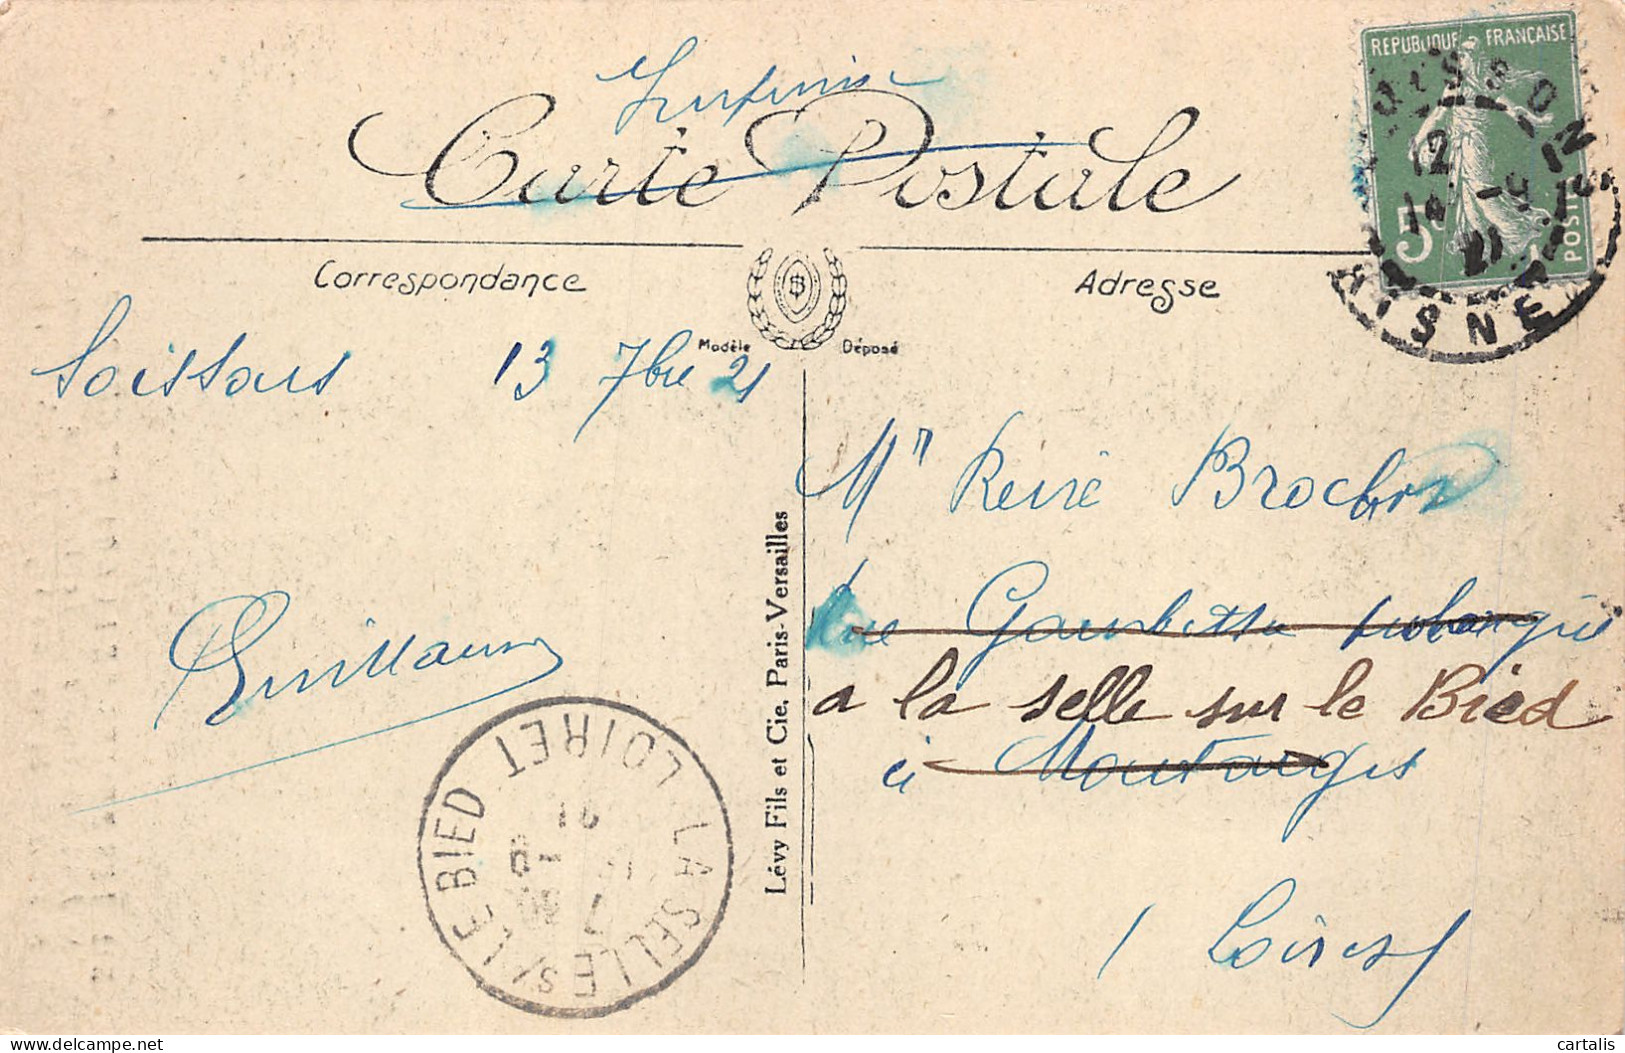 Imprimé
Carte Postale
RÉPUBLIQUE FRANÇAISE
5c
POSTES
SOISSONS
12
14 -9
21
AISNE
Correspondance
Adresse
B
Modèle Déposé
Soissons 13 7bre 21
Mr René Brochon
Rue Gambetta
a la selle sur le Bied
à Montargis
(Loiret)
Guillaume
Lévy Fils et Cie, Paris-Versailles
LA SELLE S/ LE BIED LOIRET
cartalis